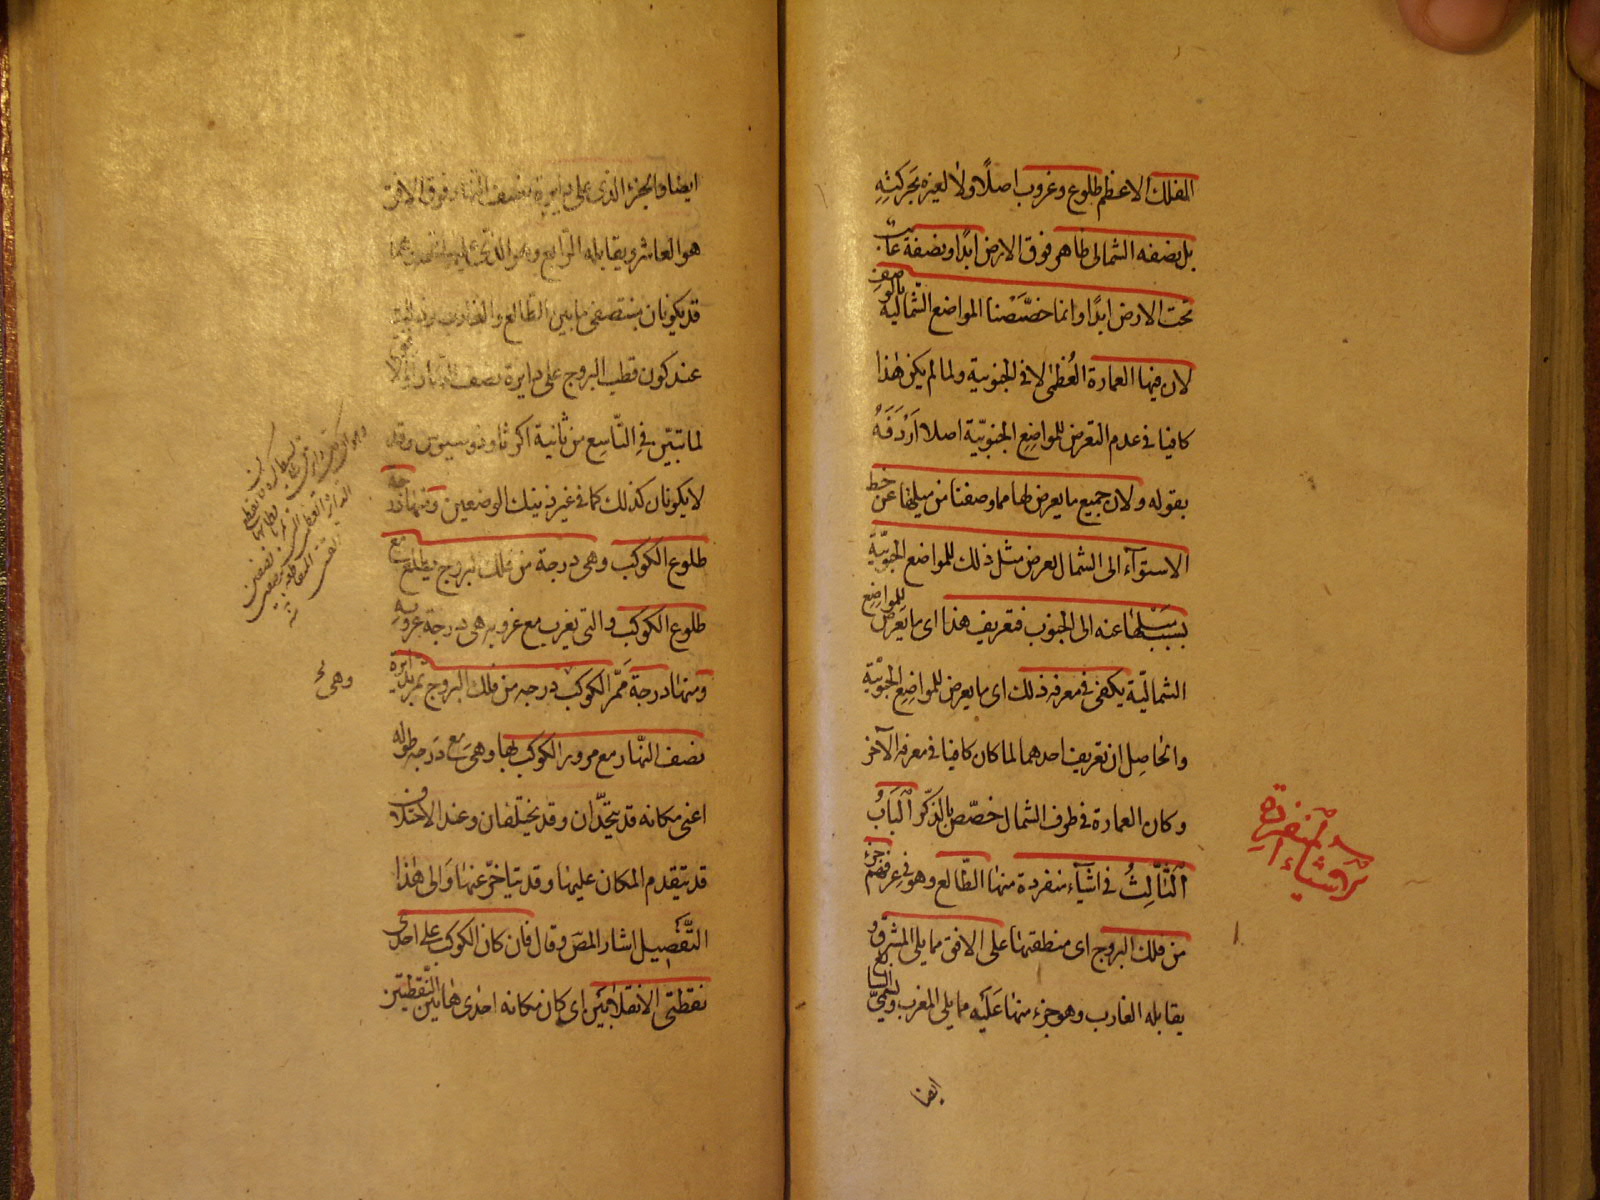 الفلك الاعظم طلوع وغروب اصلًا ولا لغيره بحركتِهِ
بل نصفه الشمالى ظاهر فوق الارض ابدًا ونصفة غائب
تحت الارض ابدًا وانما خصَّصْنا المواضع الشّماليه بالوصف
لان فيها العمارة العُظمٰى لا فى الجنوبية ولما لم يكن هٰذا
كافيا فى عدم التعرض للمواضِع الجنوبيّة اصلا اَرْدَفَهُ
بقوله ولان جميع ما يعرض لها مما وصفنا من ميلها عن خط
الاستوآء الى الشمال يعرض مثل ذلك للمواضع الجنوبيّة
بسبب مَيْلها عنه الى الجنوب فتعريف هذا اى ما يَعرض للمواضِع
الشماليّة يكفى فى معرفه ذلك اى ما يعرض للمواضِع الجنوبيّة
والحاصِل ان تعريف احدهما لما كان كافيا فى معرفه الآخر
وكان العمارة فى طرف الشمال خصّص بالذكر اَلْبَابُ
اَلثَّالِثُ فى اشيآء منفردة منها الطّالع وهو فى عرفهم جزء
من فلك البروج اى منطقتها على الافق مما يلى المشرق و
يقابله الغارب وهو جزء منها عَلَيه مما يلى المغرب ويسمّى السابع
ايضا
فى اشياء منفردة
ايضا والجزء الذى على دايرة نصف النهار فوق الافق
هو العاشر يقابله الرّابع وهو الذى تحت
قد يكونان بمنتصفى ما بين الطّالع والغارب وذلك
عند كون قطب البروج على دايرة نصف النهار
لما تبيّن فى التّاسِع من ثانية اكر ثاوذوسيوس وقد
لا يكونان كذلك كما فى غير ذينك الوضعين ومنها درجة
طلوع الكوكب وهى درجة من فلك البروج يطلع مع
طلوع الكوكب والتى يغرب مع غروبه هى درجة غروبه
ومنها درجة مَمَرّ الكوكب درجه من فلك البروج تمرّ بدايرة
نصف النّهار مع مرور الكوكب بها وهى مع درجه طوله
اعنى مكانه قد يتحدّان وقد يختلفان وعند الاختلاف
قد يتقدم المكان عليها وقد يتاخّر عنها والى هٰذا
التّفصِيل اشار المص وقال فان كان الكوكب على احدى
نقطتى الانقلابَيْن اى كان مكانه احدى هاتين النّقطتين
وهى